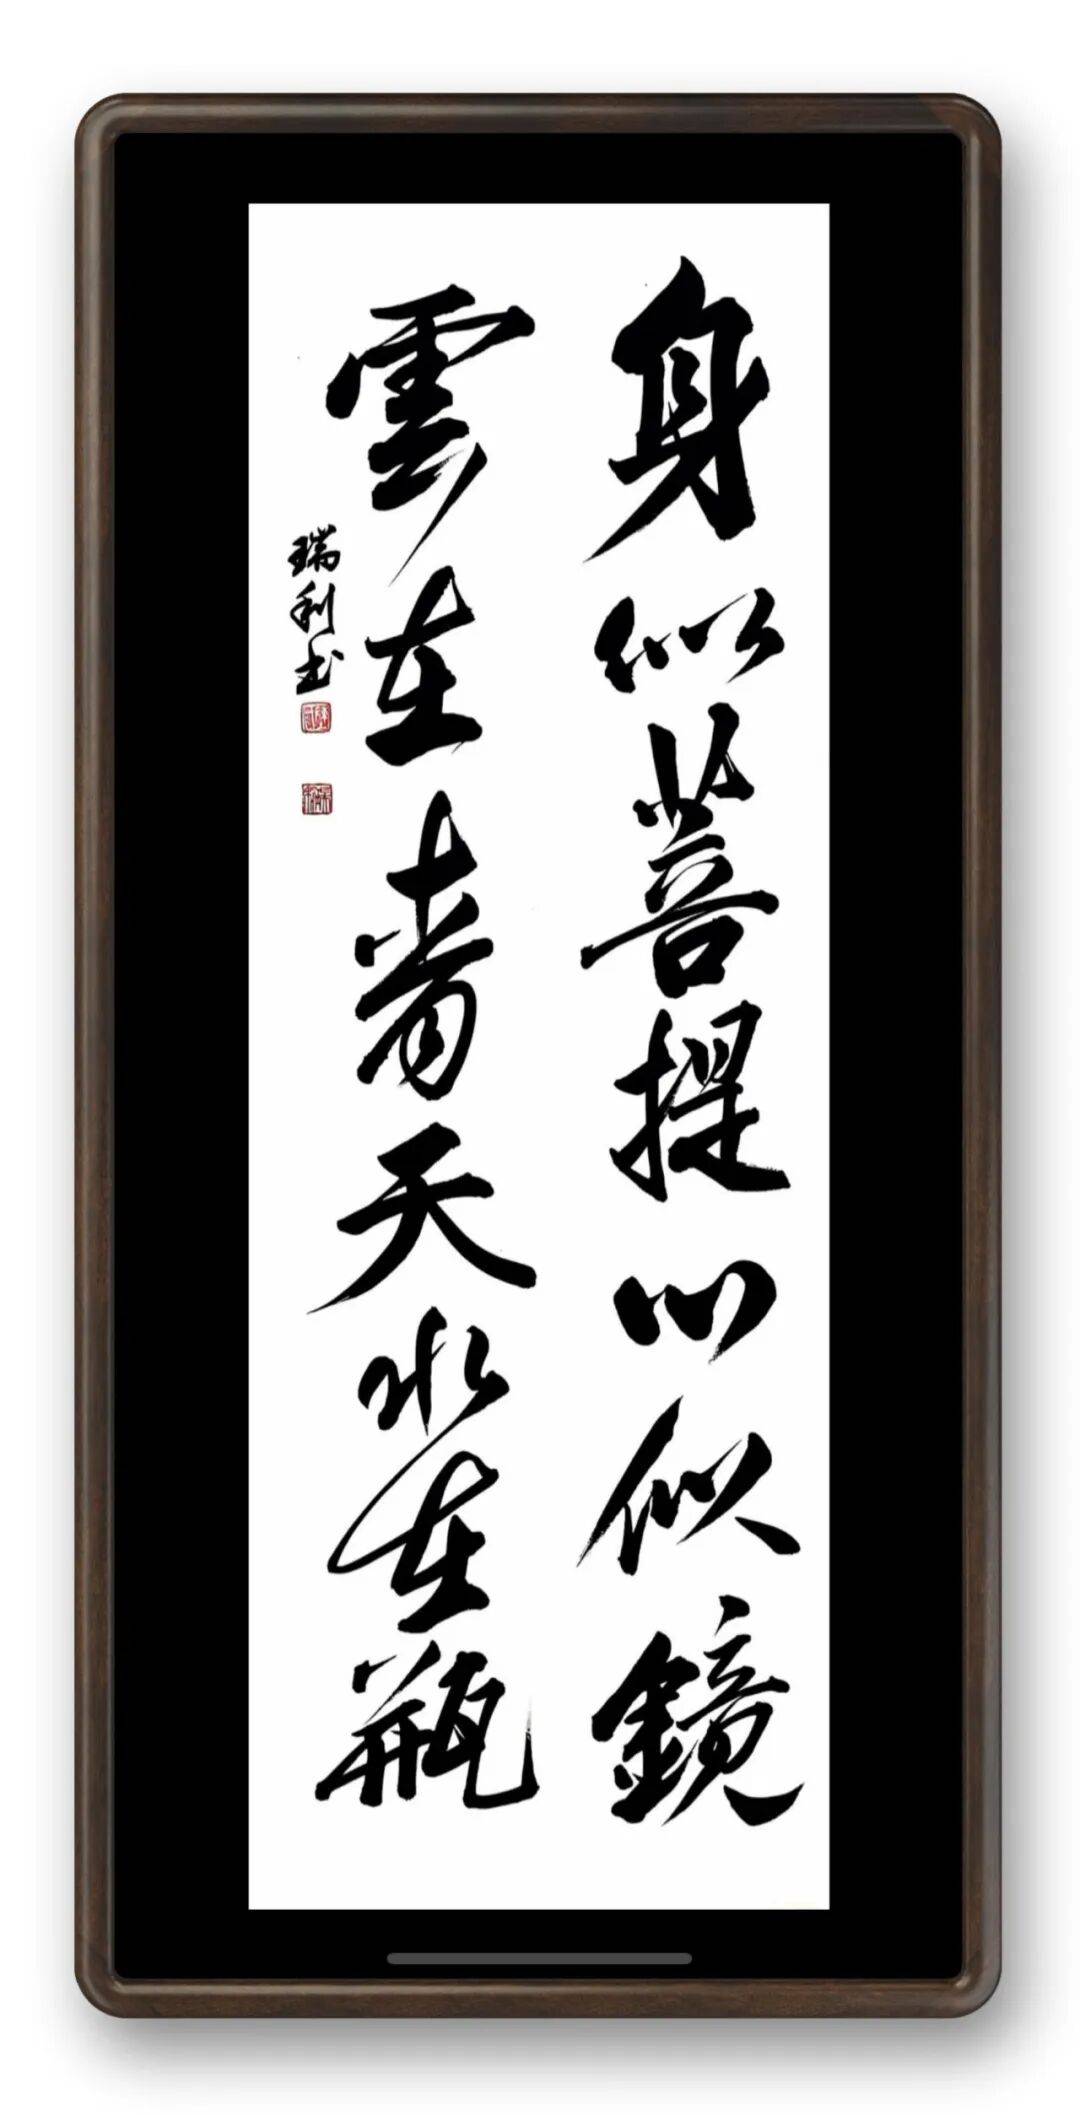 身似菩提心似鏡
雲在青天水在瓶
瑞利书